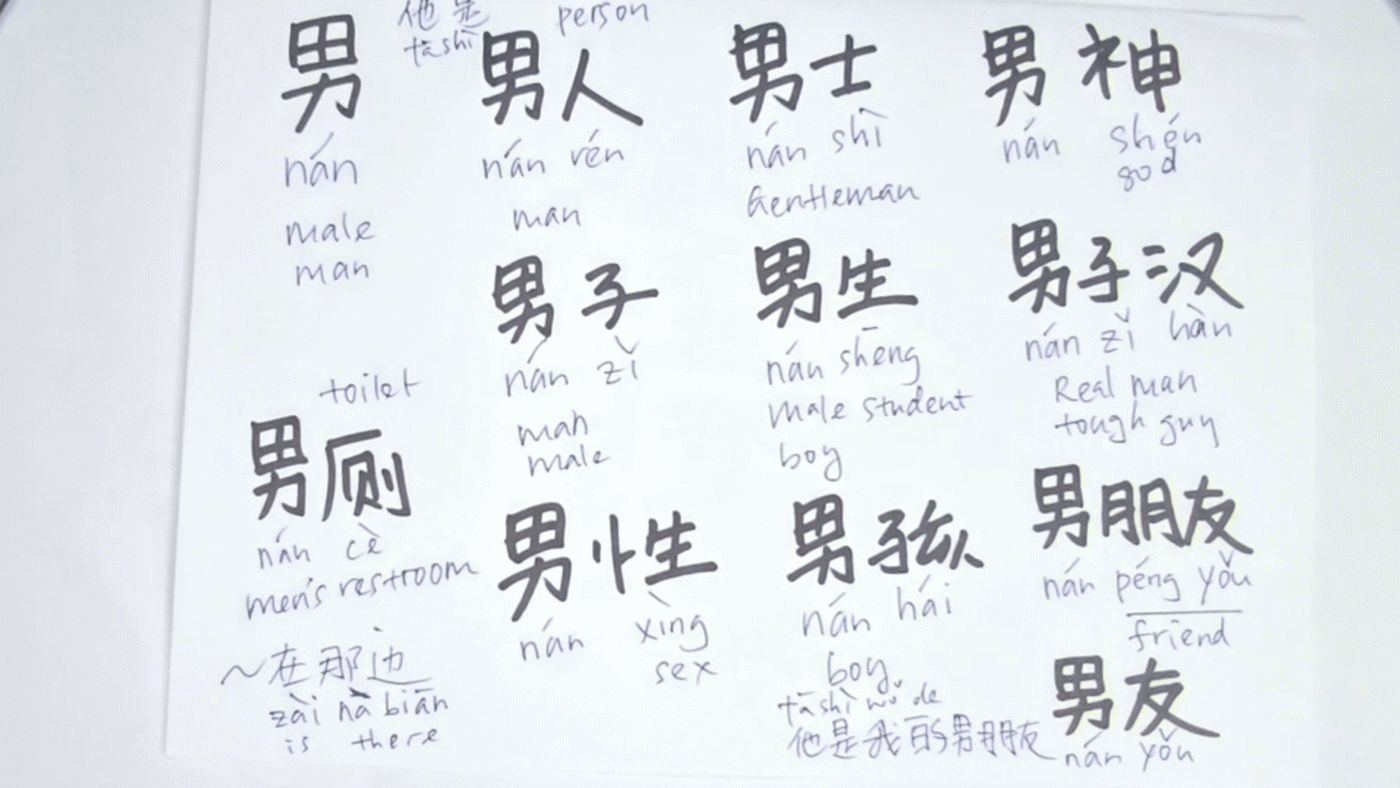 男
nán
male
man
他是
tā shì
person
男人
nán rén
man
男士
nán shì
Gentleman
男神
nán shén
god
男子
nán zǐ
man
male
男生
nán shēng
male student
boy
男子汉
nán zǐ hàn
Real man
tough guy
toilet
男厕
nán cè
men's restroom
~在那边
zài nà biān
is there
男性
nán xìng
sex
男孩
nán hái
boy
tā shì wǒ de
他是我的男朋友
男朋友
nán péng yǒu
friend
男友
nán yǒu